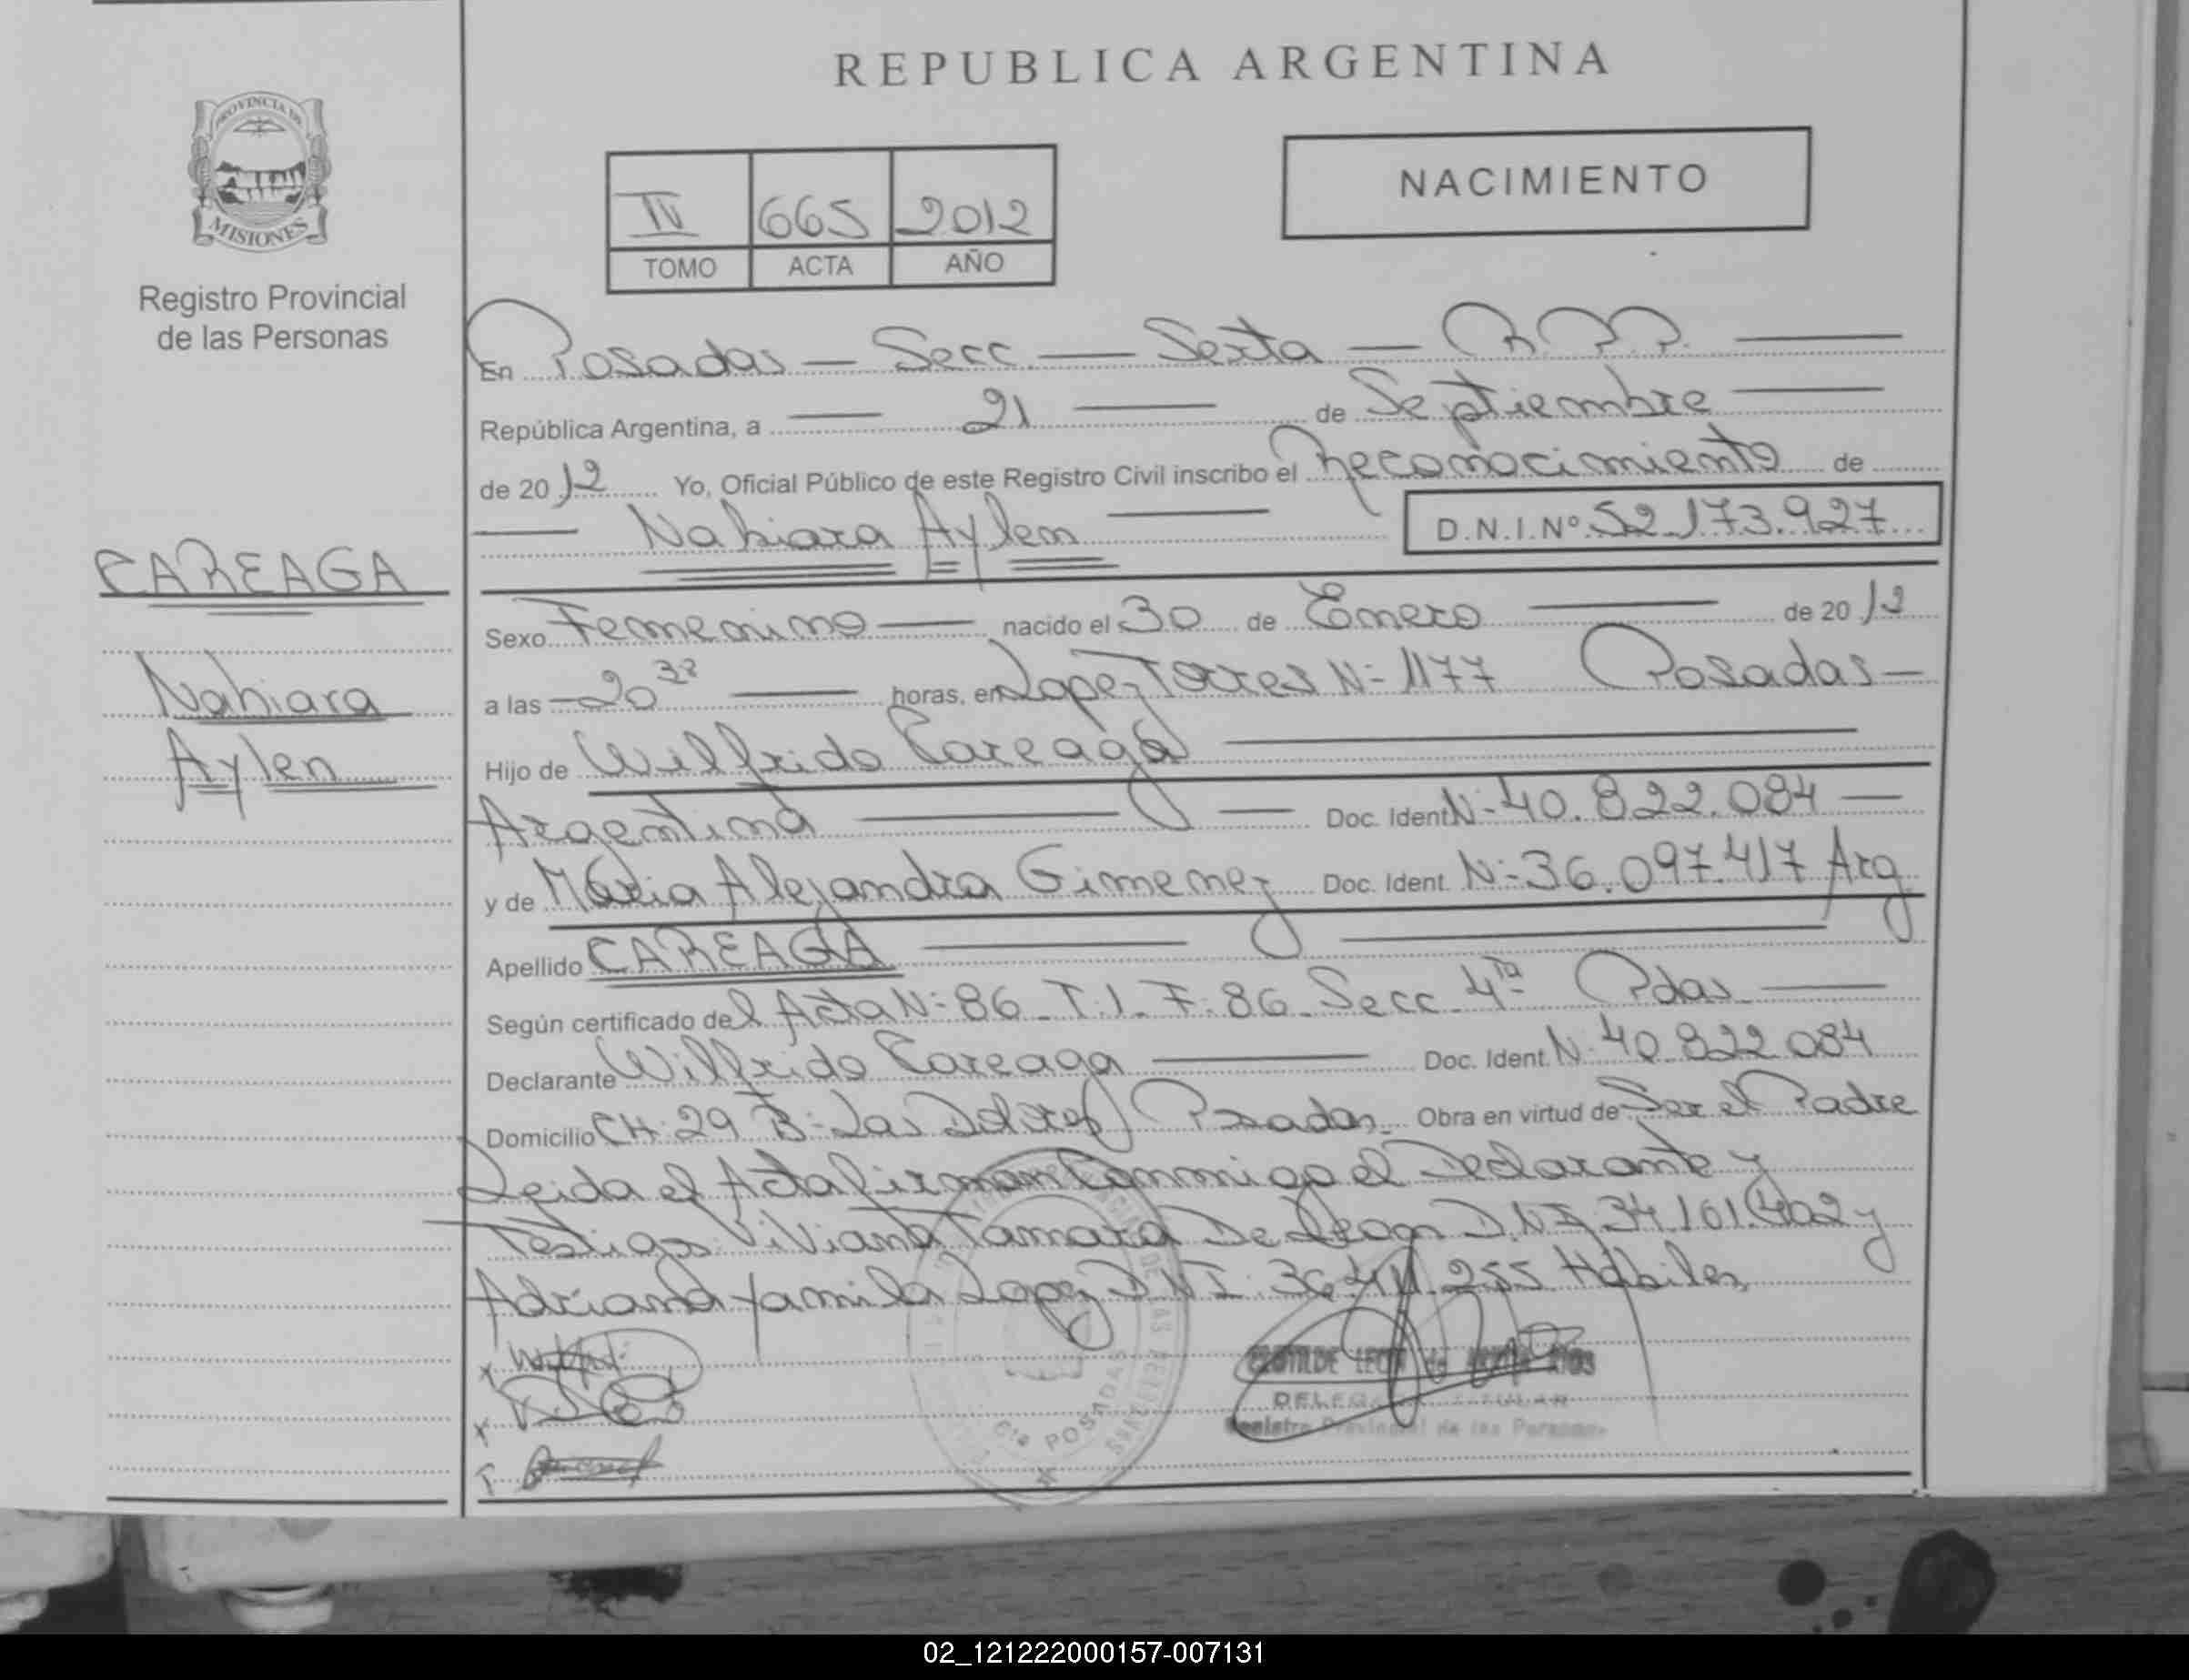 REPUBLICA ARGENTINA
PROVINCIA DE
MISIONES
Registro Provincial
de las Personas
NACIMIENTO
IV 665 2012
TOMO ACTA AÑO
En Posadas — Secc. — Sexta — R.P.P. —
República Argentina, a — 21 — de Septiembre —
de 2012 Yo, Oficial Público de este Registro Civil inscribo el Reconocimiento de
— Nahiara Aylen — D.N.I.Nº 52.173.927
CAREAGA
Nahiara
Aylen
Sexo Femenino — nacido el 30 de Enero — de 2012
a las — 20 38 — horas, en Lopez Torres N- 1177 Posadas —
Hijo de Wilfrido Careaga —
Argentina — — Doc. Ident N- 40.822.084 —
y de Maria Alejandra Gimenez Doc. Ident. N- 36.097.417 Arg
Apellido CAREAGA — —
Según certificado del Acta N- 86 - T.1. F. 86 - Secc 4ta Pdas —
Declarante Wilfrido Careaga — Doc. Ident. N- 40.822.084
Domicilio CH. 29 B- Las Posadas. Obra en virtud de Ser el Padre
Leida el Acta firman Conmigo el Declarante y
Testigos Viviana Tamara De Leon D.N.I 34.101.402 y
Adriana Yamila Lopez D.N.I. 36.411.255 Hábiles
CLOTILDE
DELEGADA TITULAR
Registro Provincial de las Personas
6ta POSADAS
02_121222000157-007131